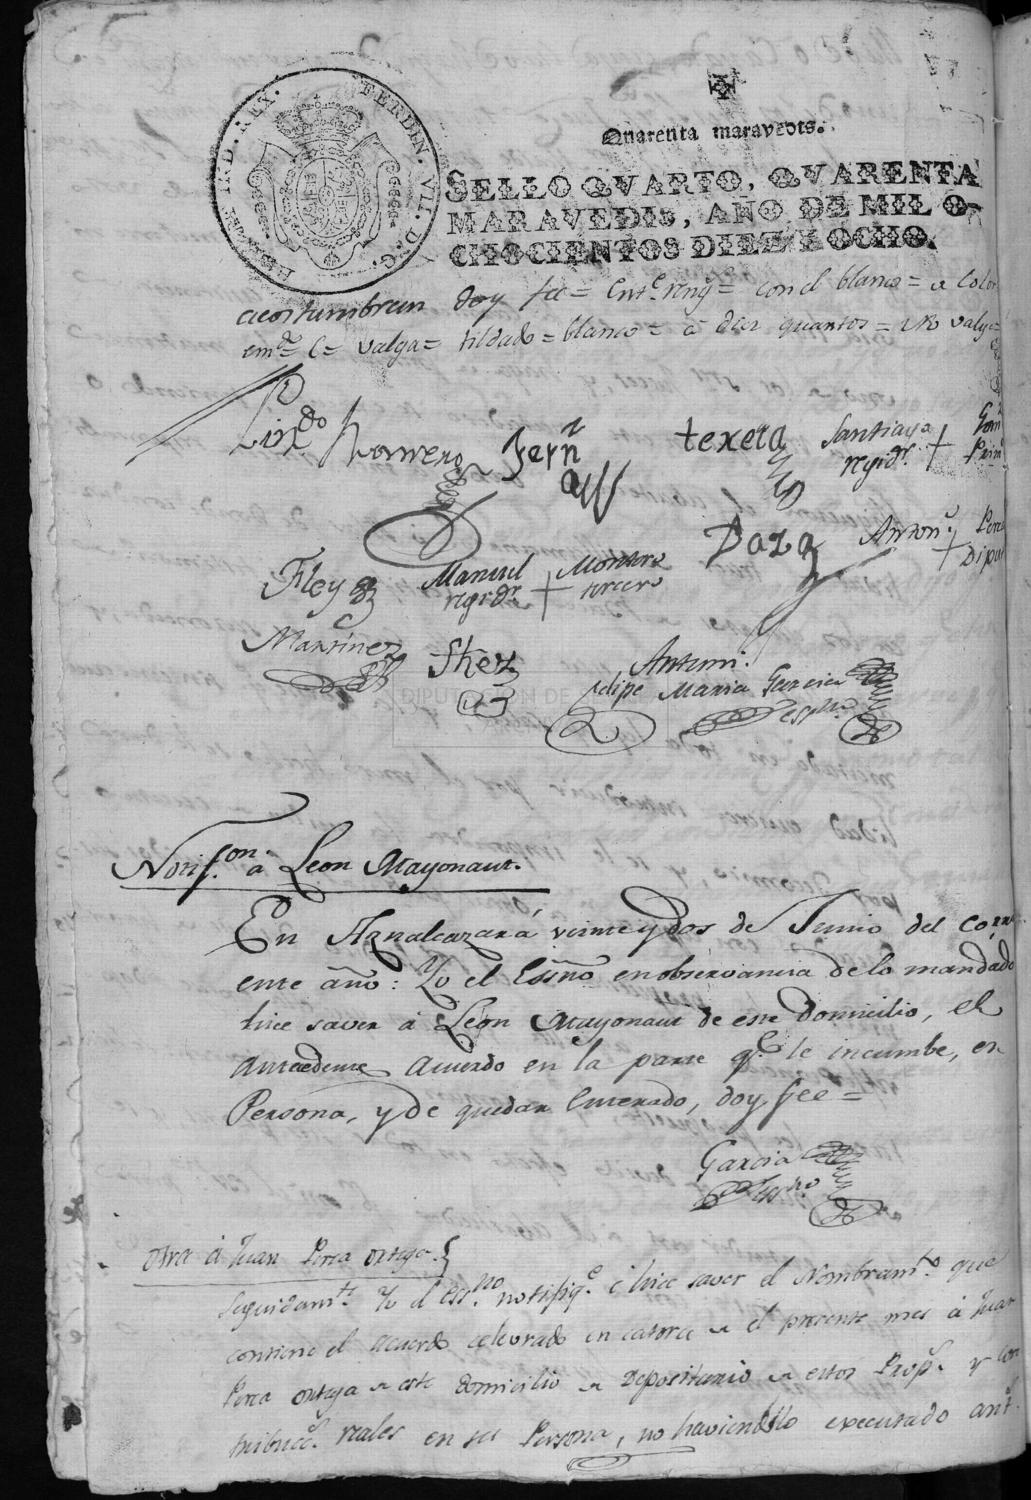 HISPANIAR. IRD. REX. FERDIN. VII. D. G.
Quarenta maravedis.
SELLO QVARTO, QVARENTA
MARAVEDIS, AÑO DE MIL O-
CHOCIENTOS DIEZ Y OCHO.
acostumbran doy fee = Entre reng.s = con el blanco = a color
em.do = C = valga = tildado = blanco = a diez quartos = no valga =
Lix.do Romero Fern.z texeia Santiago
regidr.
Daza Anton.o Perea
Diput
Fley Manuel Montero
regidr. tercero
Martinez Shez Antemi.
Felipe Maria Garcia
ess.no
DIPUTACION DE
Notif.on a Leon Mayonaut.
En Aznalcazar á veinte y dos de Junio del corri
ente año: Yo el Essno en observancia de lo mandado
hice saver á Leon Mayonaut de este Domicilio, el
antecedente Acuerdo en la parte q.e le incumbe, en
Persona, y de quedar Enterado, doy fee =
Garcia
Ess.no
Otra á Juan Perea Ortega.
Seguidam.te Yo el Ess.no notifiq.e é hice saver el Nombram.to que
contiene el Acuerdo celevrado en catorce de el presente mes á Juan
Perea Ortega de este domicilio de Depositario de estos Prop.s y con
tribuc.s reales en su Persona, no haviendolo executado ant.s